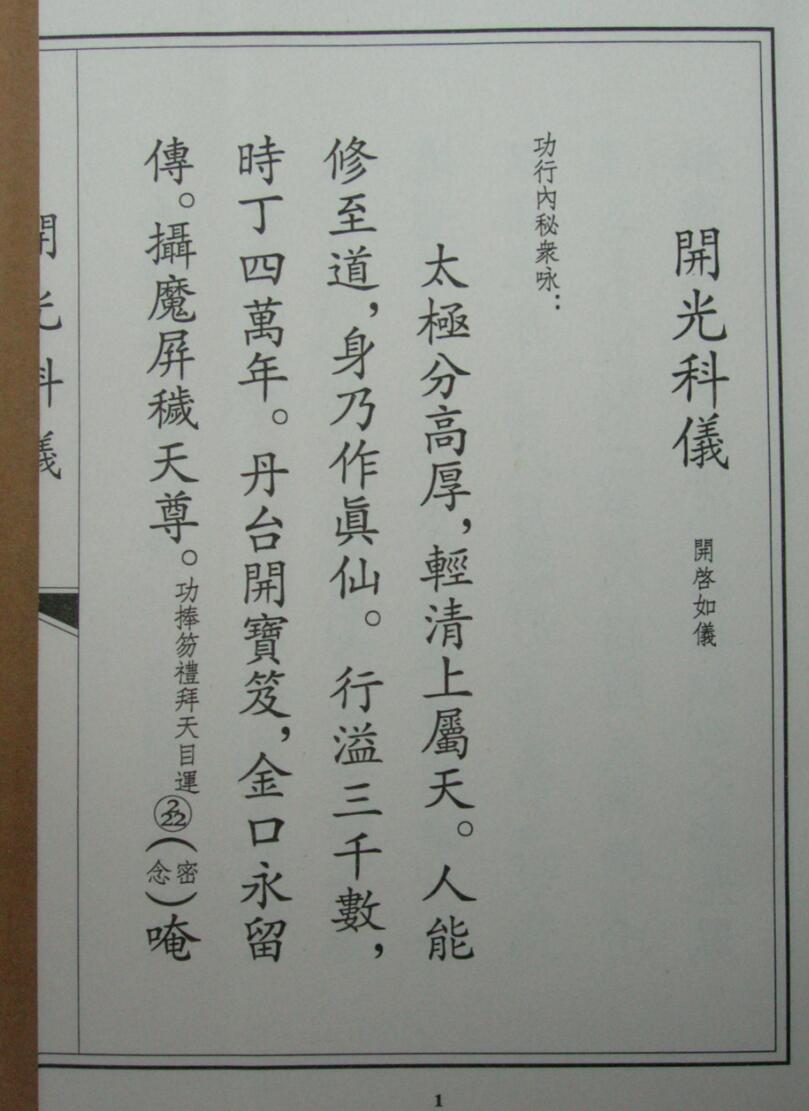 開光科儀 開啓如儀
功行內秘衆咏：
太極分高厚，輕清上屬天。人能
修至道，身乃作眞仙。行溢三千數，
時丁四萬年。丹台開寶笈，金口永留
傳。攝魔屛穢天尊。功捧笏禮拜天目運（密念）唵
開光科儀
1